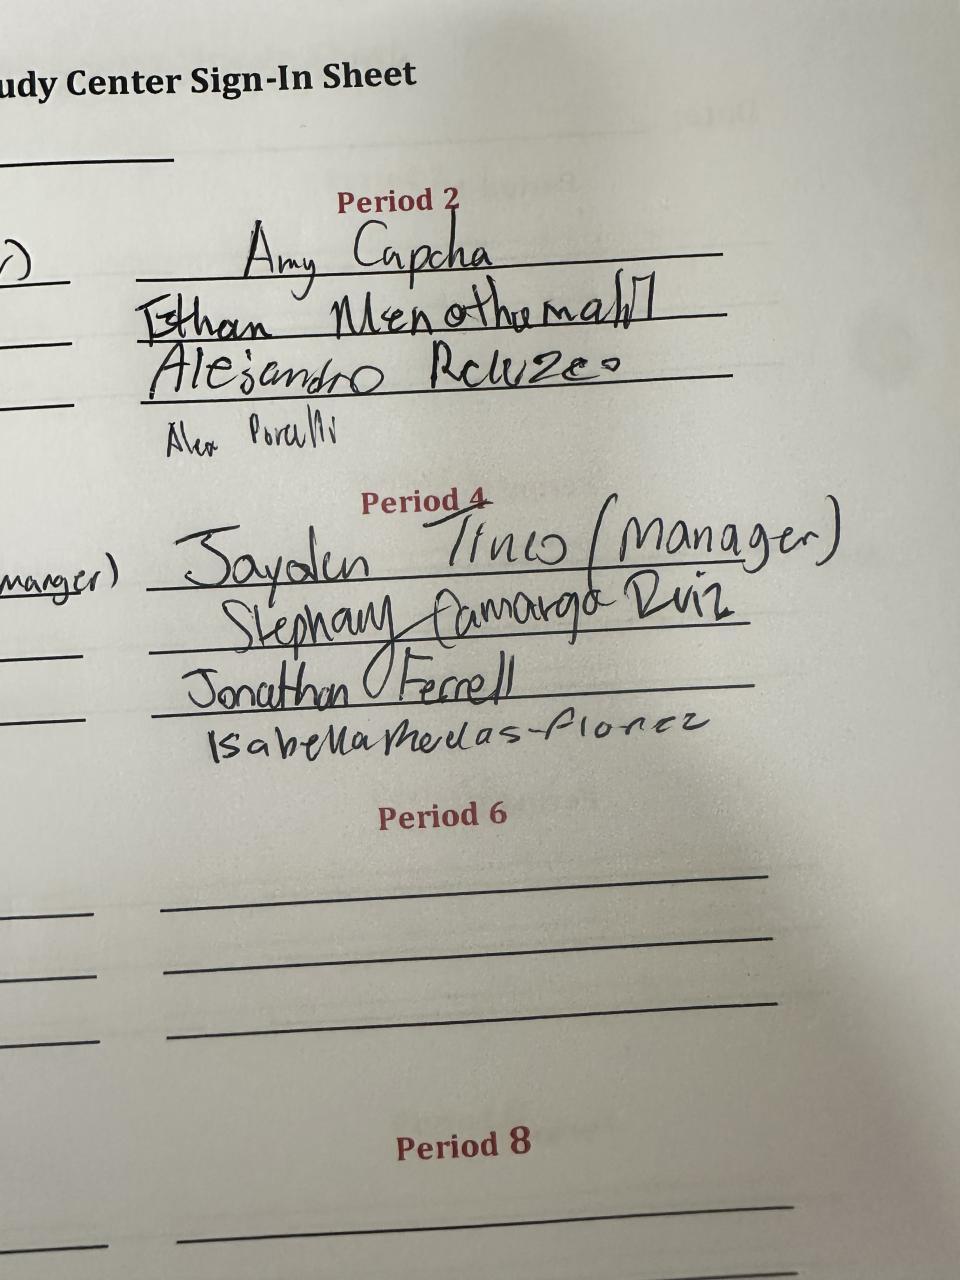 udy Center Sign-In Sheet
Period 2
Amy Capcha
Ethan
Alejandro
Alex
Period 4
manger)
Jayden Tinco (manager)
Stephany Camargo Ruiz
Jonathan Ferrell
Isabella
Period 6
Period 8